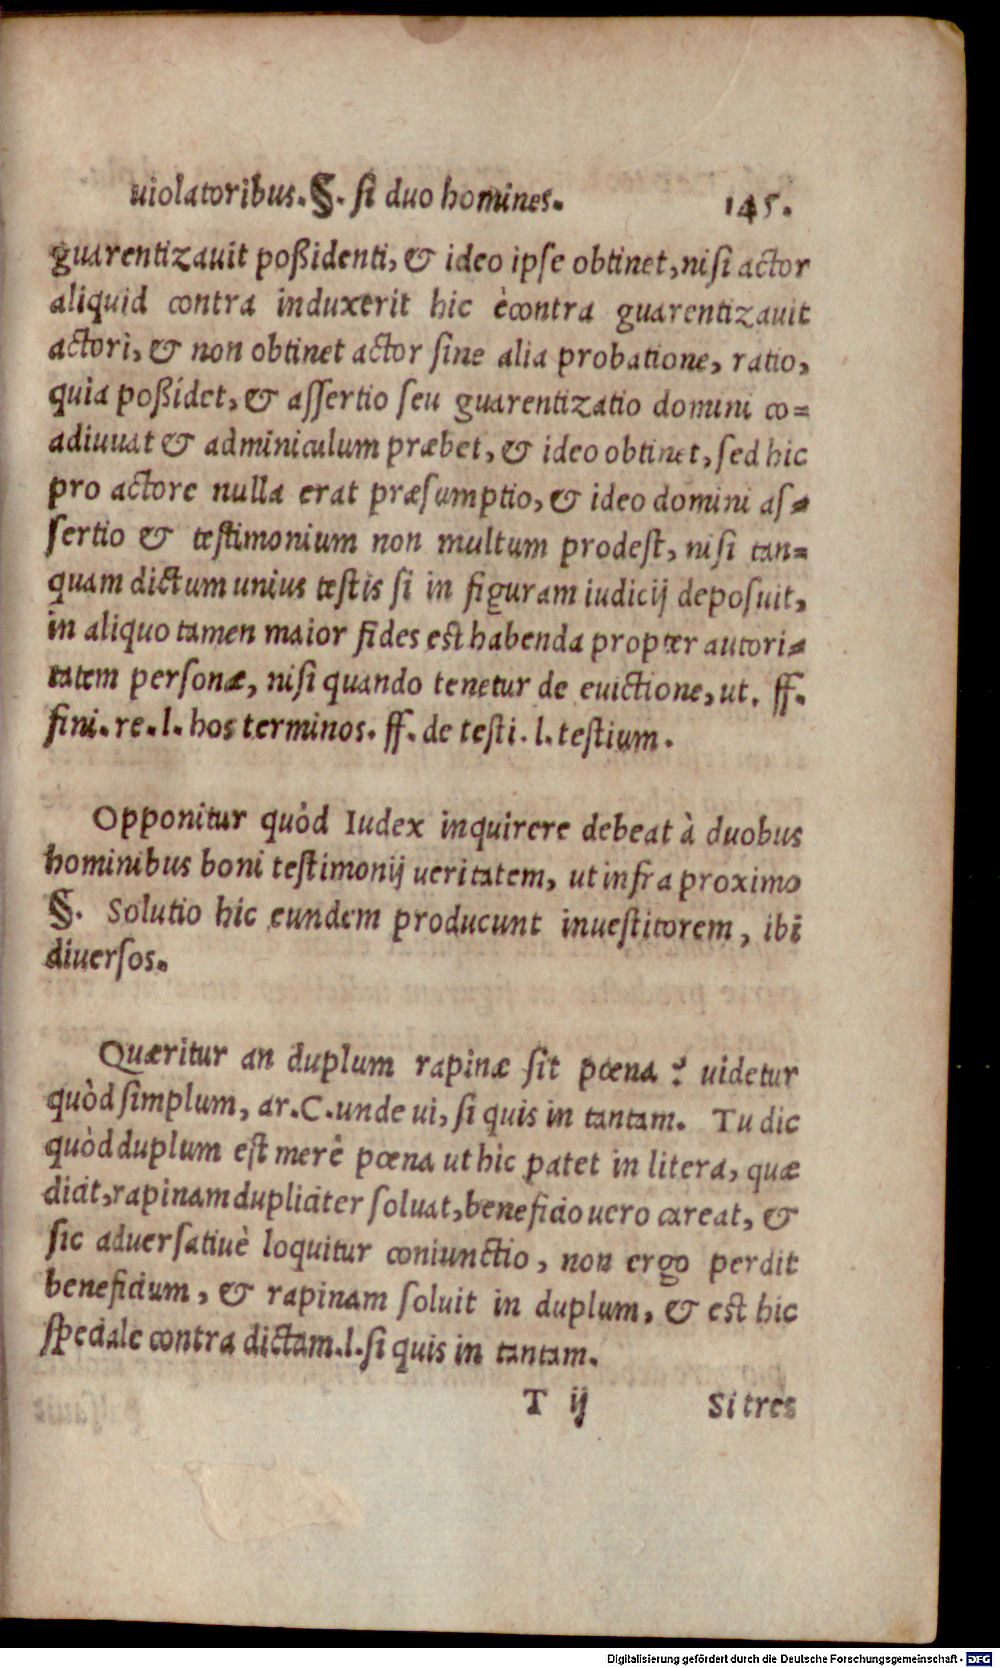 uiolatoribus.§. si duo homines. 145.
guarentizauit poßidenti, & ideo ipse obtinet, nisi actor
aliquid contra induxerit hic ècontra guarentizauit
actori, & non obtinet actor sine alia probatione, ratio,
quia poßidet, & assertio seu guarentizatio domini co=
adiuuat & adminiculum præbet, & ideo obtinet, sed hic
pro actore nulla erat præsumptio, & ideo domini as=
sertio & testimonium non multum prodest, nisi tan=
quam dictum unius testis si in figuram iudicij deposuit,
in aliquo tamen maior fides est habenda propter autori=
tatem personæ, nisi quando tenetur de euictione, ut. ff.
fini. re. l. hos terminos. ff. de testi. l. testium.
Opponitur quòd Iudex inquirere debeat à duobus
hominibus boni testimonij ueritatem, ut infra proximo
§. Solutio hic eundem producunt inuestitorem, ibi
diuersos.
Quæritur an duplum rapinæ sit pœna ? uidetur
quòd simplum, ar. C. unde ui, si quis in tantam. Tu dic
quòd duplum est merè pœna ut hic patet in litera, quæ
dicit, rapinam dupliciter soluat, beneficio uero careat, &
sic aduersatiuè loquitur coniunctio, non ergo perdit
beneficium, & rapinam soluit in duplum, & est hic
speciale contra dictam. l. si quis in tantam.
T ij Si tres
Digitalisierung gefördert durch die Deutsche Forschungsgemeinschaft - DFG